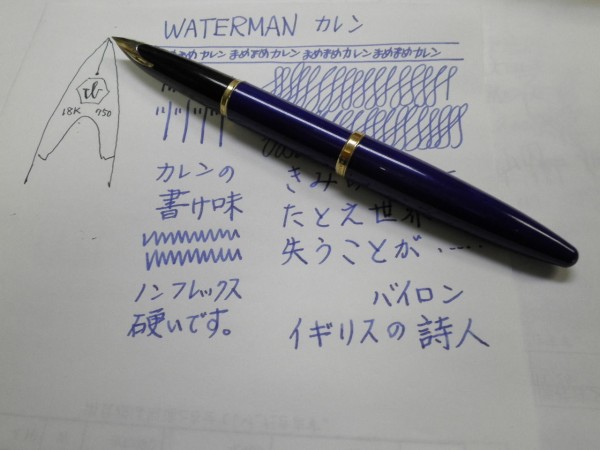 WATERMAN カレン
まめ カレン まめまめカレン まめまめカレン まめまめカレン
18K 750
カレンの
書け味
ノンフレックス
硬いです。
きみ
たとえ世界
失うことが・・・・
バイロン
イギリスの詩人